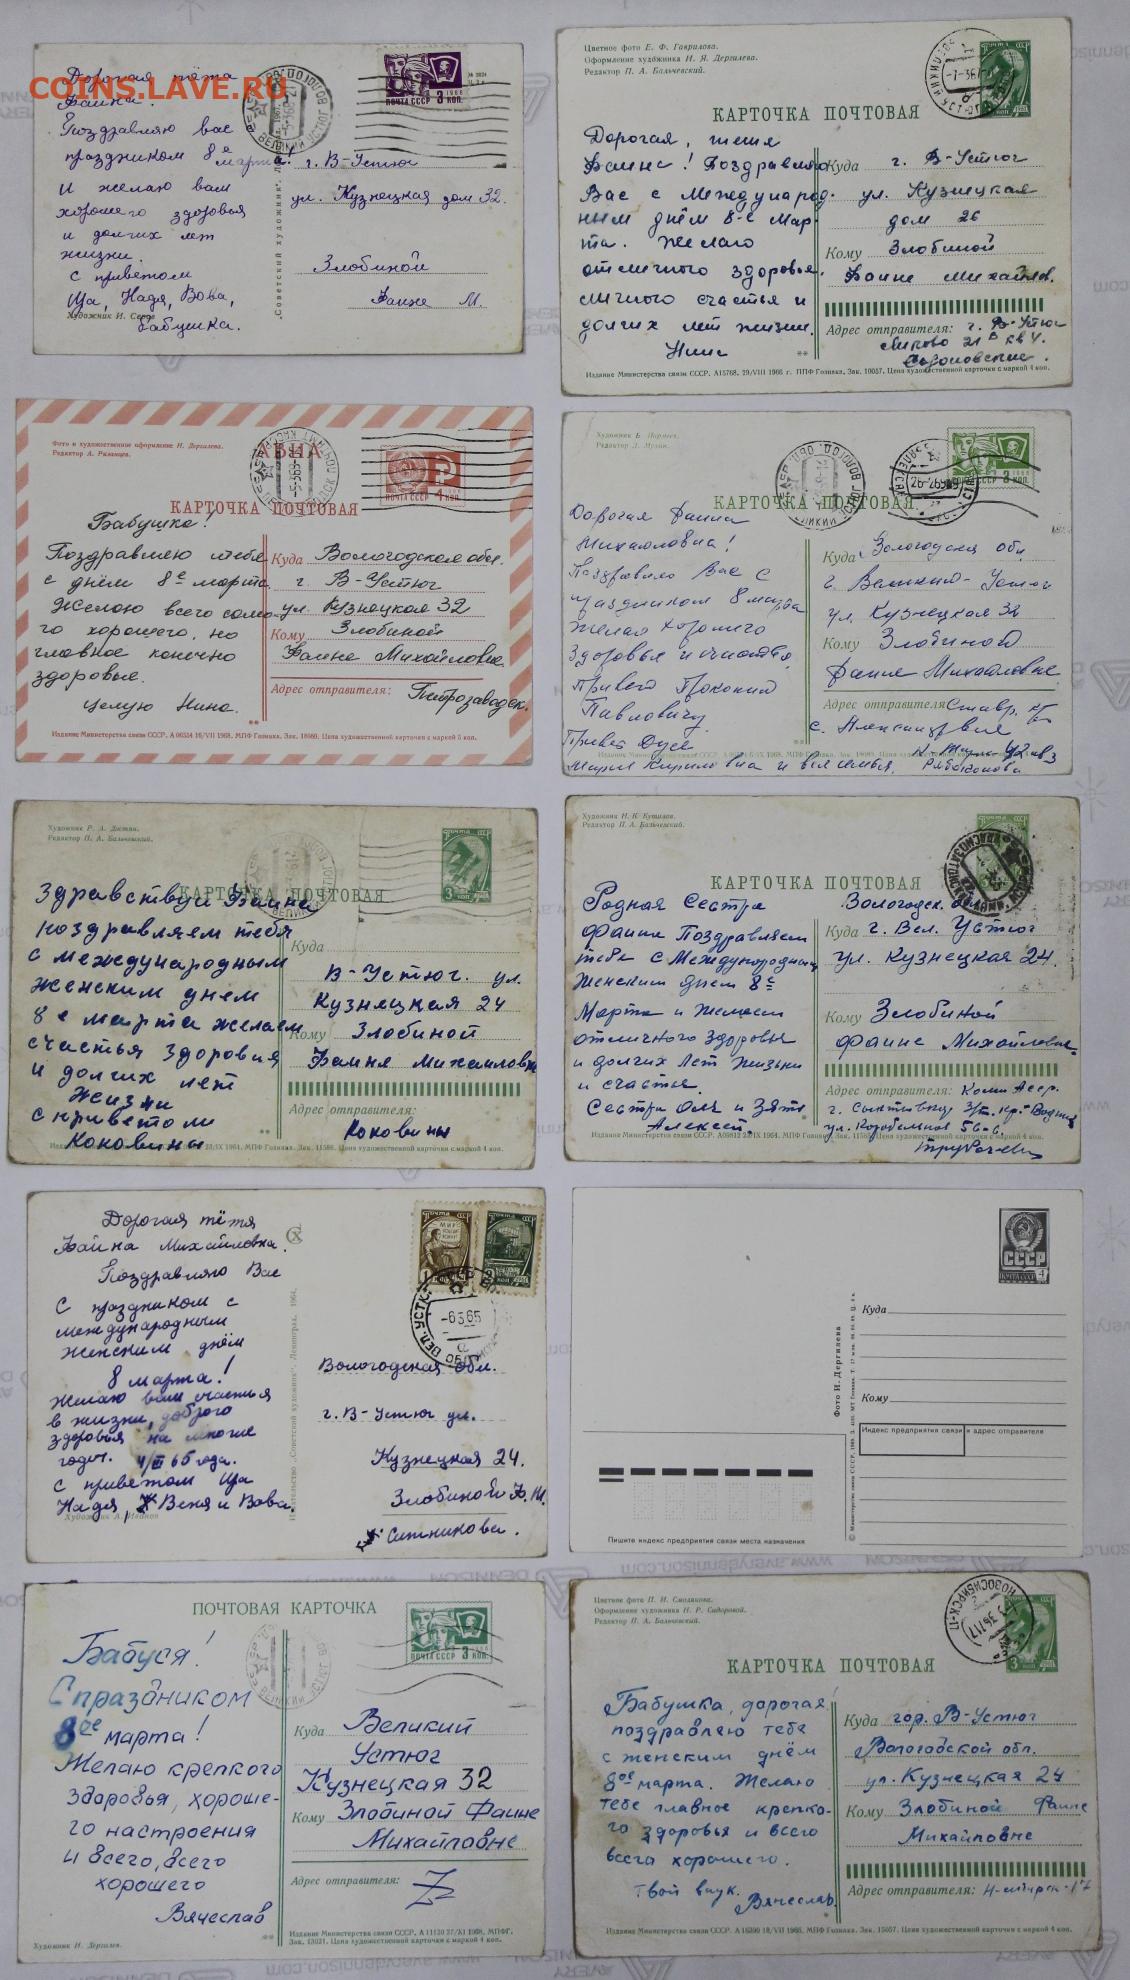 COINS.LAVE.RU
Дорогая тётя
Фаина.
Поздравляю вас
праздником 8е марта!
и желаю вам
хорошего здоровья
и долгих лет
жизни.
с приветом
Ира, Надя, Вова,
бабушка.
"Советский художник".
ПОЧТА СССР 3 КОП.
ВЕЛИКИЙ УСТЮГ
г. В-Устюг
ул. Кузнецкая дом 32.
Злобиной
Фаине М.
Цветное фото Е. Ф. Гаврилова.
Оформление художника И. Я. Дергилева.
Редактор П. А. Бальчевский.
КАРТОЧКА ПОЧТОВАЯ
Дорогая, тётя
Фаина! Поздравляю
Вас с Международ-
ным днём 8-е Мар-
та. Желаю
отличного здоровья.
личного счастья и
долгих лет жизни.
Нина
Куда г. В-Устюг
ул. Кузнецкая
дом 26
Кому Злобиной
Фаине Михайлов.
Адрес отправителя: г. В-Устюг
Издание Министерства связи СССР. А15768. 29/VIII 1966 г. ППФ Гознака. Зак. 10057. Цена художественной карточки с маркой 4 коп.
Фото и художественное оформление И. Дергилева.
Редактор А. Рязанцев.
АВИА
ПОЧТА СССР 4 КОП.
КАРТОЧКА ПОЧТОВАЯ
Бабушка!
Поздравляю тебя
с днём 8е марта.
Желаю всего само-
го хорошего, но
главное конечно
здоровье.
Целую Нина.
Куда Вологодская обл.
г. В-Устюг
ул. Кузнецкая 32
Кому Злобиной
Фаине Михайловне.
Адрес отправителя: Петрозаводск.
Издание Министерства связи СССР. А 06534 16/VII 1968. МПФ Гознака. Зак. 18660. Цена художественной карточки с маркой 5 коп.
КАРТОЧКА ПОЧТОВАЯ
Дорогая Фаина
Михайловна!
Поздравляю Вас с
праздником 8 марта
Желаю хорошего
Здоровья и счастья.
Привет Прокопию
Павловичу.
Привет Дусе
Мария Кириловна и вся семья.
Куда Вологодская обл.
г. Великий-Устюг
ул. Кузнецкая 32
Кому Злобиной
Фаине Михайловне.
Адрес отправителя: Ставр.
с. Александровское
Редактор П. А. Бальчевский.
КАРТОЧКА ПОЧТОВАЯ
Здравствуй Фаина
поздравляем тебя
с международным
женским днем
8 е марта желаем
счастья здоровия
и долгих лет
жизни
с приветом
Коковины
Куда
В-Устюг. ул.
Кузнецкая 24
Кому Злобиной
Фаиня Михаиловн
Адрес отправителя:
Коковины
Художник Н. К. Кутилов.
Редактор П. А. Бальчевский.
КАРТОЧКА ПОЧТОВАЯ
Родная Сестра
Фаина Поздравляем
тебя с Международным
Женским днем 8е
Марта и Желаем
отличного здоровья
и долгих лет Жизни
и счастья.
Сестра Оля и Зять
Алексей.
Вологодск. о
Куда г. Вел. Устюг
ул. Кузнецкая 24.
Кому Злобиной
Фаине Михайловне.
Адрес отправителя: Коми Асср.
г. Сыктывкар
56-6
Дорогая тётя
Фаина Михайловна.
Поздравляю Вас
С праздником с
международным
женским днём
8 марта!
желаю вам счастья
в жизни, доброго
здоровья на многие
годы. 4/III 65 года.
с приветом Ира
Надя, Веня и Вова.
Художник А. Иванов
Издательство "Советский художник". Ленинград. 1964.
-6365
Вологодская обл.
г. В-Устюг ул.
Кузнецкая 24.
Злобиной Ф. М.
Ситникова.
СССР
ПОЧТА СССР 4
Куда
Кому
Индекс предприятия связи и адрес отправителя
Фото И. Дергилева
Пишите индекс предприятия связи места назначения
ПОЧТОВАЯ КАРТОЧКА
ПОЧТА СССР 3 КОП.
Бабуся!
С праздником
8ое марта!
Желаю крепкого
здоровья, хороше-
го настроения
и всего, всего
хорошего
Вячеслав
Художник И. Дергилев.
Куда Великий
Устюг
Кузнецкая 32
Кому Злобиной Фаине
Михайловне
Адрес отправителя:
Издание Министерства связи СССР, А 11130 27/XI 1968. МПФГ.
Зак. 13021. Цена художественной карточки с маркой 4 коп.
Цветное фото П. И. Смолякова.
Оформление художника Н. Р. Сидоровой.
Редактор П. А. Бальчевский.
НОВОСИБИРСК-17
КАРТОЧКА ПОЧТОВАЯ
Бабушка, дорогая!
поздравляю тебя
с женским днём
8ое марта. Желаю
тебе главное крепко-
го здоровья и всего
всего хорошего.
Твой внук.
Вячеслав.
Куда гор. В-Устюг
Вологодской обл.
ул. Кузнецкая 24
Кому Злобиной Фаине
Михайловне
Адрес отправителя: Н-сибирск-17
Издание Министерства связи СССР. А 16390 18/VII 1966. МПФ Гознака. Зак. 15057. Цена художественной карточки с маркой 4 коп.